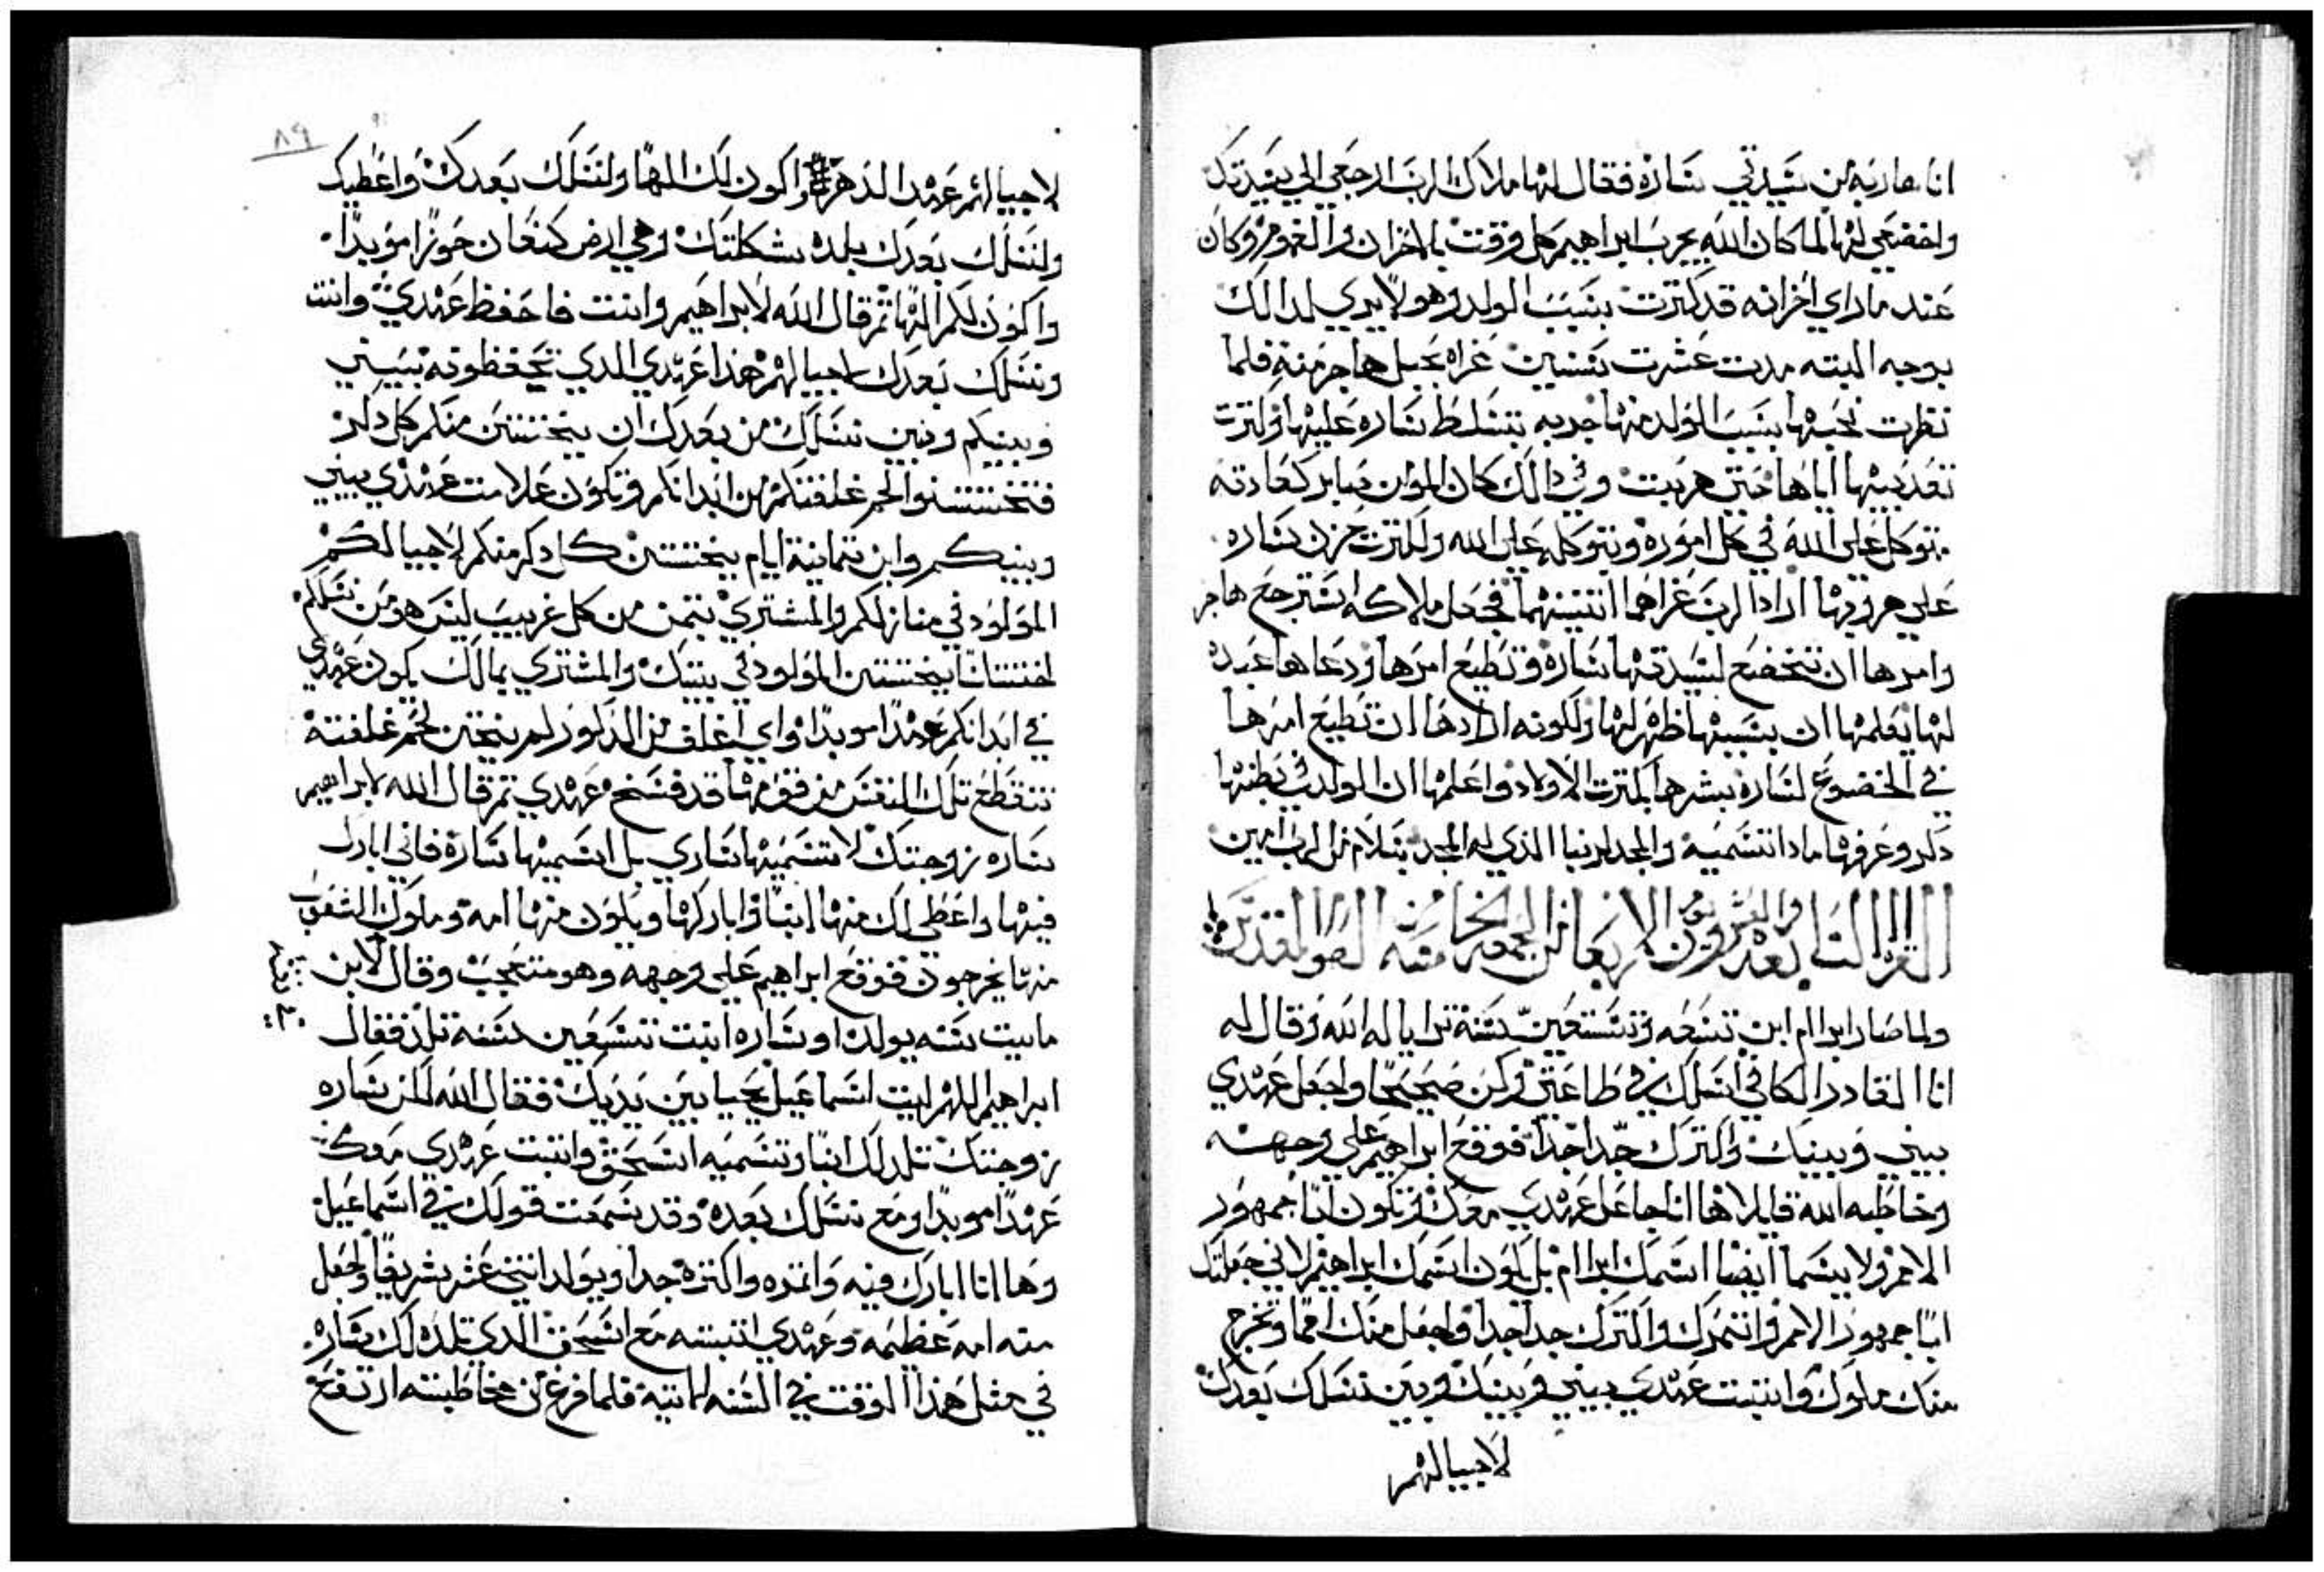 انا هاربه من سيدتي ساره فقال لها ملاك الرب ارجعي الي سيدتك
واخضعي لها لما كان الله يجرب ابراهيم كل وقت بالاحزان والغموم وكان
عند ماراي احزانه قد كترت بسبب الولد وهو لا يري لدالك
بوجه البته مدت عشرت سنين عزاه بحبل هاجر منه فلما
نظرت نحبها بسبب الولد منها جديه تتسلط ساره عليها وكترت
تعديبها اياها حتي هربت وفي دالك كان المومن صابر كعادته
يتوكل علي الله في كل اموره ويتوكله علي الله ولكترت حزن ساره
علي هروبها اراد الرب عزاهما اتنينهما فجعل ملاكه استرجع هاجر
وامرها ان تخضع لسيدتها ساره وتطيع امرها ودعاها عبده
لها يعلمها ان بسببها ظهر لها ولكونه ارادها ان تطيع امرها
في الخضوع لساره بشرها بكترت الاولاد واعلمها ان الولد في بطنها
دكر وعرفها مادا تسميه والمجد لربنا الذي له المجد بسلام من الرب امين
القراه التالته والعشرون يوم الاربعا من الجمعه الخامسه من الصوم المقدس
بعد
ولما صار ابرام ابن تسعه وتسعين سنة ترايا له الله وقال له
انا القادر الكافي اسلك في طاعتي وكن صحيحا واجعل عهدي
بيني وبينك واكترك جدا جدا فوقع ابراهيم علي وجهه
وخاطبه الله قايلا ها انا جاعل عهدي معك وتكون ابا جمهور
الامم ولا يسما ايضا اسمك ابرام بل يكون اسمك ابراهيم لاني جعلتك
ابا جمهور الامم وانتمرك واكترك جدا جدا واجعل منك امما وتخرج
منك ملوك واتبت عهدي بيني وبينك وبين نسلك بعدك
لاجيالهم
٨٩
لاجيالهم عهد الدهر واكون لك الها ولنسلك بعدك واعطيك
ولنسلك بعدك بلده سكنتك وهي ارض كنعان حوزا موبدا
واكون لكم الها تم قال الله لابراهيم وانت فاحفظ عهدي انت
ونسلك بعدك لاجيالهم هذا عهدي الدي تحفظونه بيني
وبينكم وبين نسلك من بعدك ان يختتن منكم كل دكر
فتختتنوا لحم غلفتكم من ابدانكم وتكون علامت عهدي بيني
وبينكم وابن تمانية ايام يختتن كل دكر منكم لاجيالكم
المولود في منازلكم والمشتري بتمن من كل غريب ليس هو من نسلكم
اختتانا يختتن المولود في بيتك والمشتري بمالك يكون عهدي
في ابدانكم عهدا موبدا واي اغلف من الدكور لم يختن لحم غلفته
تنقطع تلك النفس من قومها قد فسخ عهدي تم قال الله لابراهيم
ساره زوجتك لا تسميها ساري بل اسميها ساره فاني ابارك
فيها واعطي لك منها ابنا واباركها ويكون منها امة وملوك الشعوب
منها يخرجون فوقع ابراهيم علي وجهه وهو متعجب وقال لابن
مايت سنه يولد او ساره ابنت تسعين سنة تلد فقال
ابراهيم اللهم ليت اسماعيل يحيا بين يديك فقال الله لكن ساره
زوجتك تلد لك ابنا وتسميه اسحق واتبت عهدي معك
عهدا موبدا ومع نسلك بعده وقد سمعت قولك في اسماعيل
وها انا ابارك فيه وانمره واكتره جدا ويولد اتني عشر شريفا واجعل
منه امه عظيمه وعهدي اتبته مع اسحق الدي تلده لك ساره
في متل هذا الوقت في السنه لماتية فلما فرغ من مخاطبته ارتفع